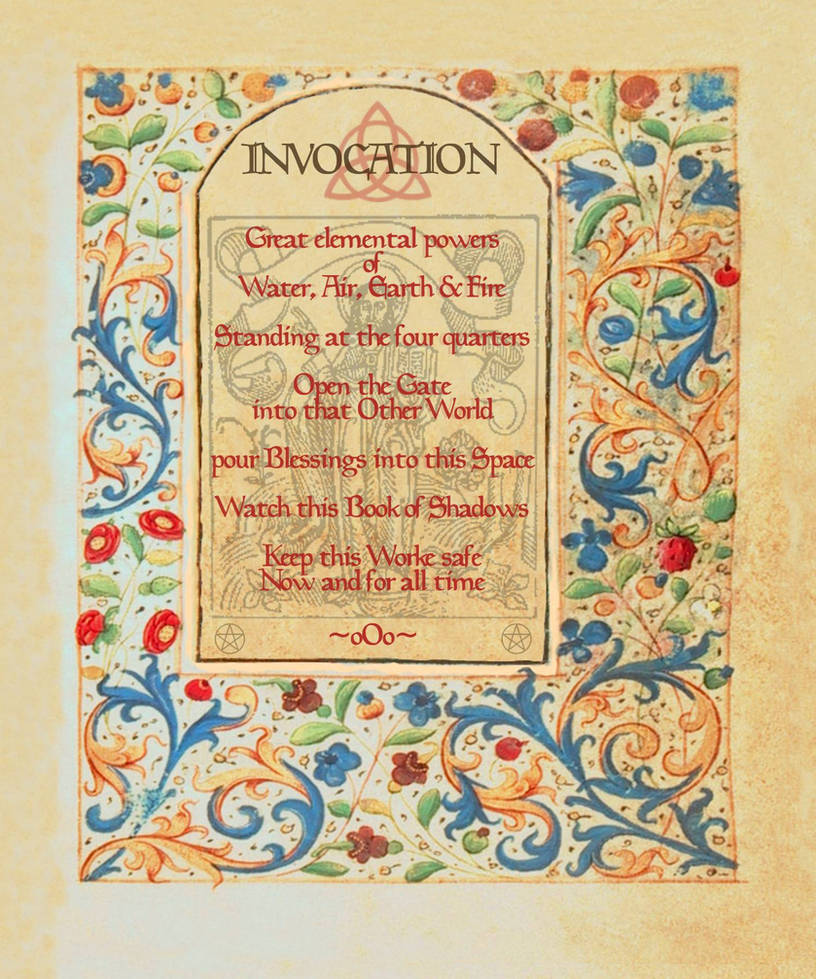 INVOCATION
Great elemental powers
of
Water, Air, Earth & Fire
Standing at the four quarters
Open the Gate
into that Other World
pour Blessings into this Space
Watch this Book of Shadows
Keep this Worke safe
Now and for all time
~oOo~